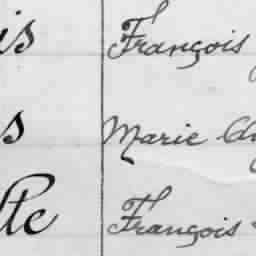 is François
s Marie
tte François